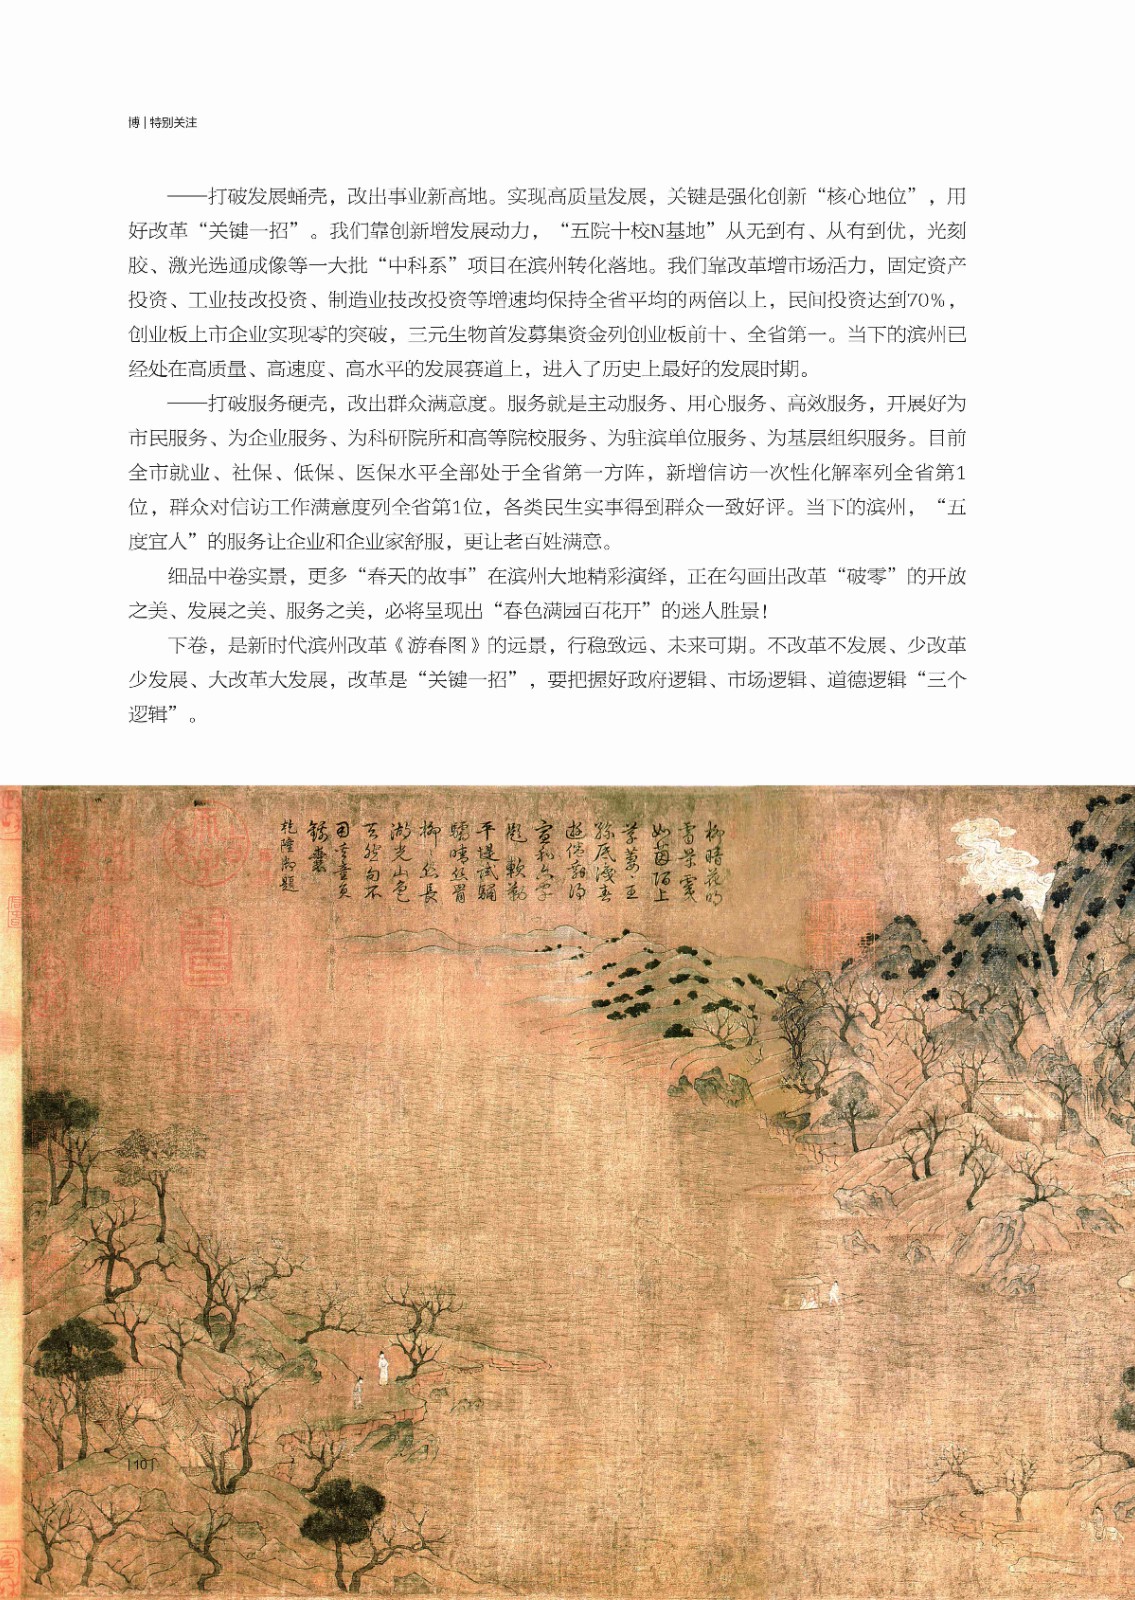 博 | 特别关注
——打破发展蛹壳，改出事业新高地。实现高质量发展，关键是强化创新“核心地位”，用
好改革“关键一招”。我们靠创新增发展动力，“五院十校N基地”从无到有、从有到优，光刻
胶、激光选通成像等一大批“中科系”项目在滨州转化落地。我们靠改革增市场活力，固定资产
投资、工业技改投资、制造业技改投资等增速均保持全省平均的两倍以上，民间投资达到70%，
创业板上市企业实现零的突破，三元生物首发募集资金列创业板前十、全省第一。当下的滨州已
经处在高质量、高速度、高水平的发展赛道上，进入了历史上最好的发展时期。
——打破服务硬壳，改出群众满意度。服务就是主动服务、用心服务、高效服务，开展好为
市民服务、为企业服务、为科研院所和高等院校服务、为驻滨单位服务、为基层组织服务。目前
全市就业、社保、低保、医保水平全部处于全省第一方阵，新增信访一次性化解率列全省第1
位，群众对信访工作满意度列全省第1位，各类民生实事得到群众一致好评。当下的滨州，“五
度宜人”的服务让企业和企业家舒服，更让老百姓满意。
细品中卷实景，更多“春天的故事”在滨州大地精彩演绎，正在勾画出改革“破零”的开放
之美、发展之美、服务之美，必将呈现出“春色满园百花开”的迷人胜景！
下卷，是新时代滨州改革《游春图》的远景，行稳致远、未来可期。不改革不发展、少改革
少发展、大改革大发展，改革是“关键一招”，要把握好政府逻辑、市场逻辑、道德逻辑“三个
逻辑”。
乾隆御题
| 10 |